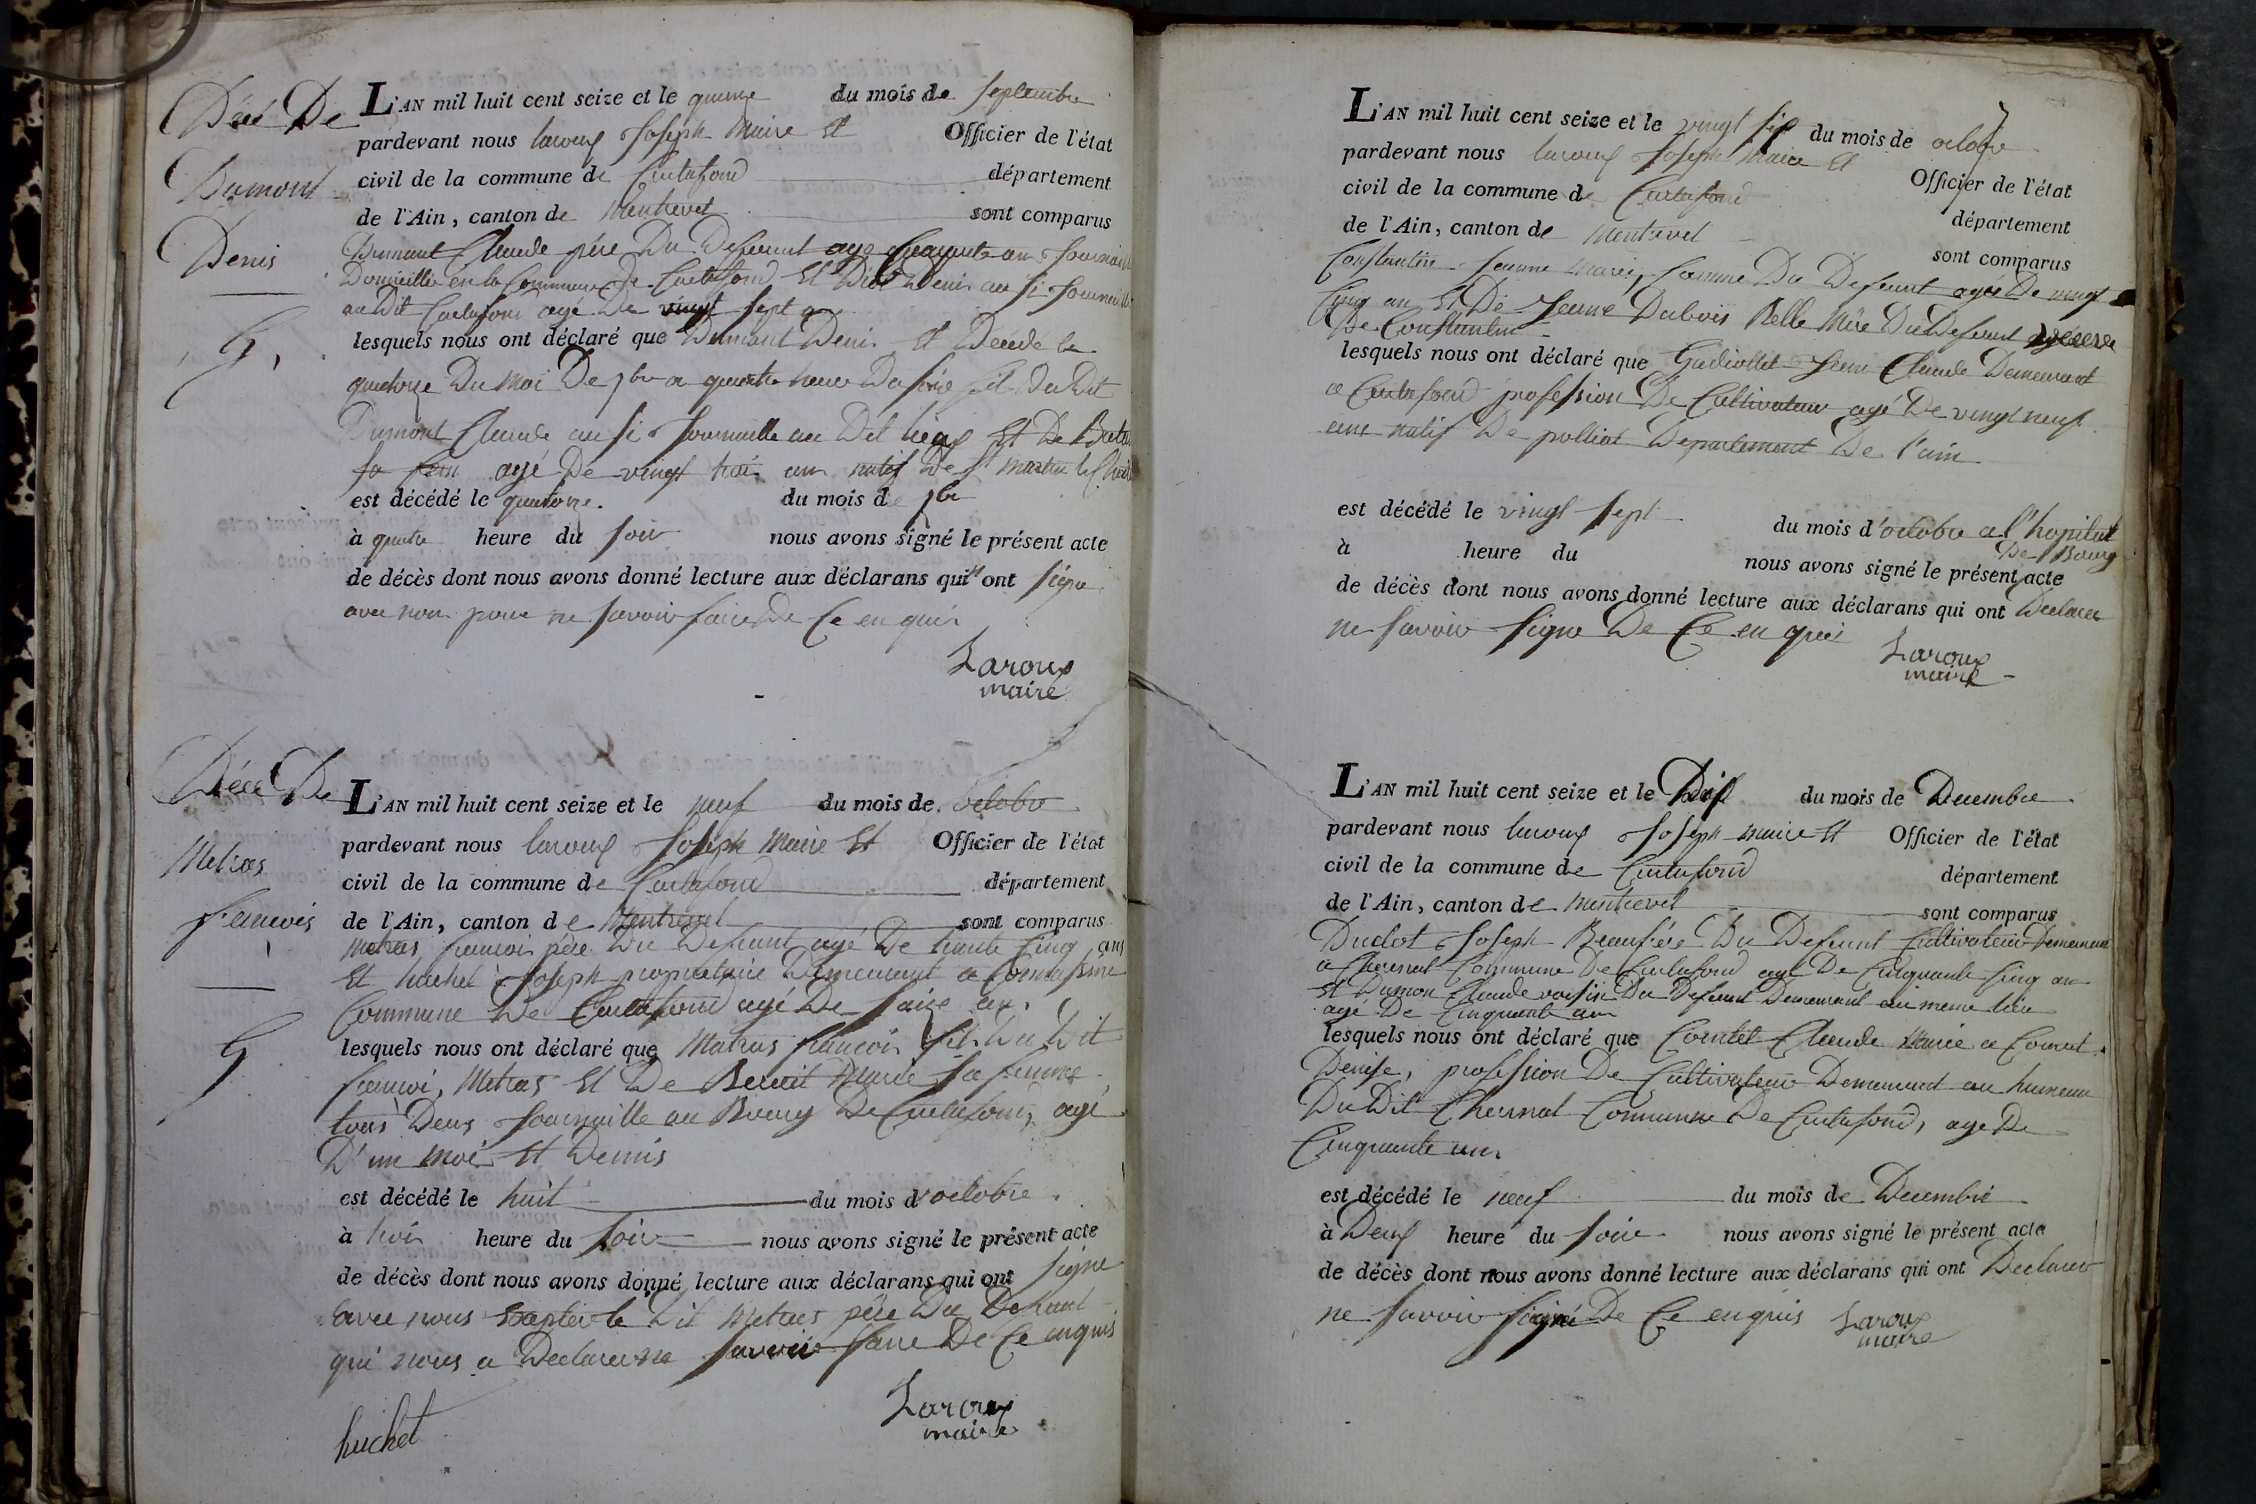 Décé De
Dumont
Denis
L'AN mil huit cent seize et le quinze du mois de septembre
pardevant nous laroux Joseph Maire et Officier de l'état
civil de la commune de Curtafond département
de l'Ain, canton de Montrevel sont comparus
Dumont Claude père Du Defeunt agé
Domicillié en la Commune De Curtafond Et Denis
au Dit Curtafond agé De vingt sept
lesquels nous ont déclaré que Dumont Denis Et Décédé le
quatorze Du moi De 7bre a quatre heure Du soire fils du Dit
Dumont Claude ausi Journaille au Dit lieux Et De
sa fem agé De vingt troi an natif De St martin
est décédé le quatorze. du mois de 7bre
à quatre heure du soir nous avons signé le présent acte
de décès dont nous avons donné lecture aux déclarans qui n ont signe
avec nou pour ne savoir faire De Ce enquis
Laroux
maire
Décé De
Metras
francois
L'AN mil huit cent seize et le neuf du mois de octobre
pardevant nous laroux Joseph Maire Et Officier de l'état
civil de la commune de Curtafond département
de l'Ain, canton de Montrevel sont comparus
Metras francoi père Du Defeunt agé De trante Cinq ans
Et huchet Joseph propriétaire Demeurant a
Commune De Curtafond agé De saize an
lesquels nous ont déclaré que Metras francoi fils Du Dit
francoi Metras Et De Benoit Marie sa femme
tous Deux Journaille au Bourg De Curtafond, agé
D'un moi Et Demis
est décédé le huit du mois d'octobre.
à troi heure du soir nous avons signé le présent acte
de décès dont nous avons donné lecture aux déclarans qui ont signe
avec nous Exepter le Dit Metras père Du Defunt
qui nous a Declarer ne savoir faire De Ce enquis
huchet
Laroux
maire
L'AN mil huit cent seize et le vingt sept du mois de octobre
pardevant nous laroux Joseph Maire Et Officier de l'état
civil de la commune de Curtafond département
de l'Ain, canton de Montrevel sont comparus
Constantin Jeanne Marie, femme Du Defeunt agée De vingt
Cinq an Et De Jeanne Dubois Belle Mère Du Defeunt
De Constantin
lesquels nous ont déclaré que Jean Claude Demeurant
a Curtafond profession De Cultivateur agé De vingt neuf
ans natif De polliat Departement De l'ain
est décédé le vingt sept du mois d'octobre a l'hopital
De Bourg
à heure du nous avons signé le présent acte
de décès dont nous avons donné lecture aux déclarans qui ont Declarer
ne savoir signe De Ce en quis
Laroux
maire
L'AN mil huit cent seize et le Dix du mois de Decembre
pardevant nous laroux Joseph maire Et Officier de l'état
civil de la commune de Curtafond département
de l'Ain, canton de Montrevel sont comparus
Joseph Beaufrére Du Defeunt Cultivateur Demeurant
a Commune De Curtafond agé De Cinquante Cinq an
Et Dumon Claude voisin Du Defeunt Demeurant au meme lieu
agé De Cinquante an
lesquels nous ont déclaré que Claude Marie
Denise, profession De Cultivateur Demeurant au hameau
Du Dit Commune De Curtafond, age De
Cinquante ans
est décédé le neuf du mois de Decembre
à Deux heure du soire nous avons signé le présent acte
de décès dont nous avons donné lecture aux déclarans qui ont Declarer
ne savoir signé De Ce enquis
Laroux
maire